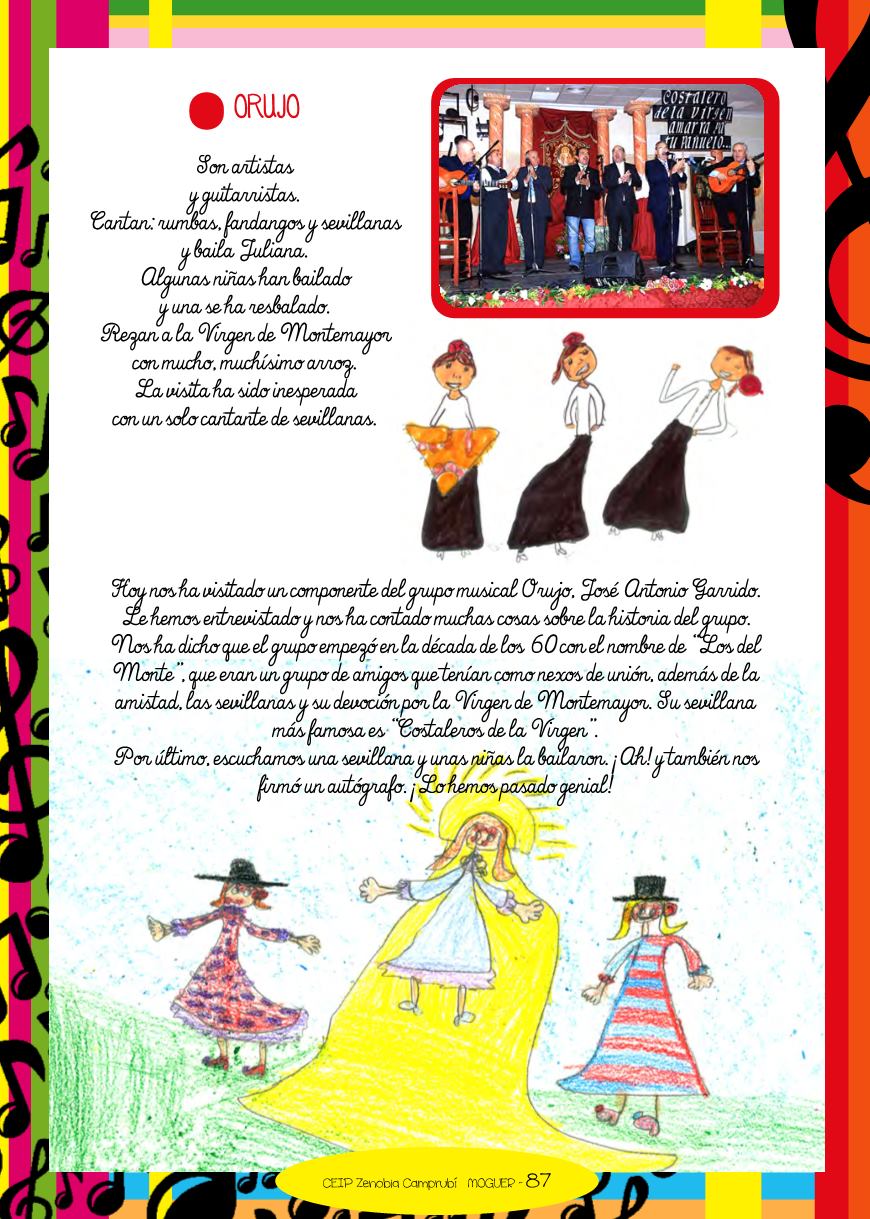 ORUJO
Son artistas
y guitarristas.
Cantan: rumbas, fandangos y sevillanas
y baila Juliana.
Algunas niñas han bailado
y una se ha resbalado.
Rezan a la Virgen de Montemayor
con mucho, muchísimo arroz.
La visita ha sido inesperada
con un solo cantante de sevillanas.
Costalero
de la Virgen
amarra pa
tu pañuelo...
Hoy nos ha visitado un componente del grupo musical Orujo, José Antonio Garrido.
Le hemos entrevistado y nos ha contado muchas cosas sobre la historia del grupo.
Nos ha dicho que el grupo empezó en la década de los 60 con el nombre de “Los del
Monte”, que eran un grupo de amigos que tenían como nexos de unión, además de la
amistad, las sevillanas y su devoción por la Virgen de Montemayor. Su sevillana
más famosa es “Costaleros de la Virgen”.
Por último, escuchamos una sevillana y unas niñas la bailaron. ¡Ah! y también nos
firmó un autógrafo. ¡Lo hemos pasado genial!
CEIP Zenobia Camprubí MOGUER - 87